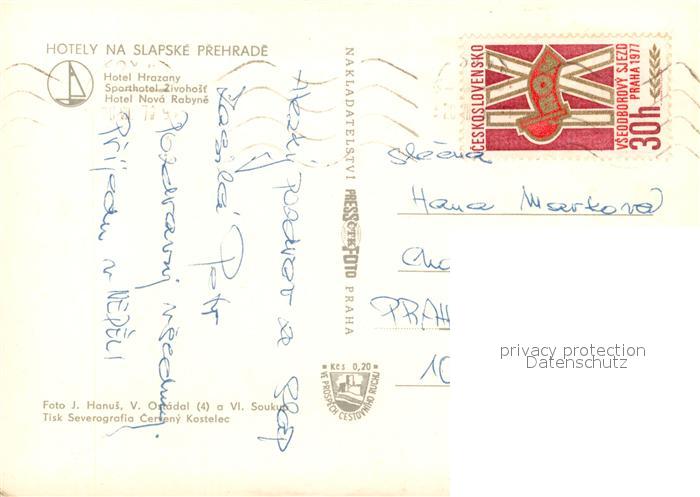 HOTELY NA SLAPSKÉ PŘEHRADĚ
Hotel Hrazany
Sporthotel Živohošť
Hotel Nová Rabyně
Hezký pozdrav ze Slap
zasílá Petr
Pozdravuj všechny.
Přijedu v NEDĚLI
Foto J. Hanuš, V. Ostádal (4) a Vl. Soukup
Tisk Severografia Červený Kostelec
NAKLADATELSTVÍ PRESSFOTO PRAHA
Kčs 0,20
VE PROSPĚCH CESTOVNÍHO RUCHU
ČESKOSLOVENSKO
IX
VŠEODBOROVÝ SJEZD
PRAHA 1977
30h
slečna
Hana Marková
PRAH
10
privacy protection
Datenschutz